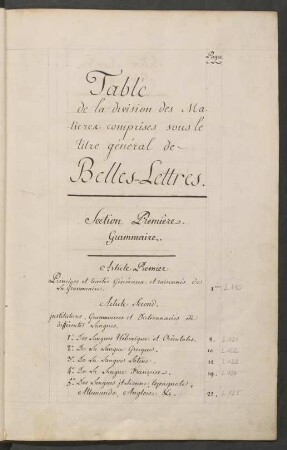 Pages
Table
de la division des Ma-
tieres comprises sous le
titre général de
Belles-Lettres.
Section Premiere.
Grammaire.
Article Premier
Principes et traités Généraux et raisonnés de
La Grammaire. 1
Article Second.
Institutions, Grammaires et Dictionnaires de
différentes Langues.
1.° Des Langues Hébraique et Orientales. 8.
2.° De La Langue Grecque. 10
3.° De La Langue Latine. 12
4.° De La Langue Française. 19.
5.° Des Langues italienne, Espagnole,
Allemande, Angloise &c. 22.